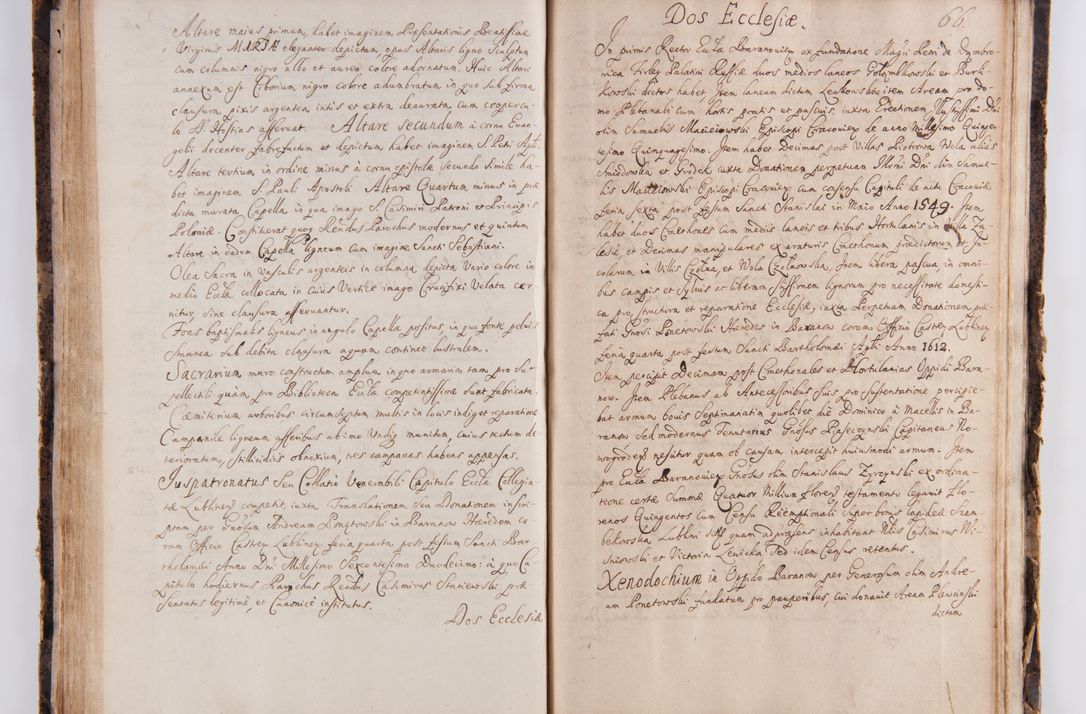 Altare maius primum, habet imaginem Præsentationis Beatissimæ
Virginis MARIÆ eleganter depictum, opus Altaris ligno Sculptum
cum columnis nigro albo et aureo colore adornatum. Huic Altari
annexum est Ciborium nigro colore adumbratum in quo sub firma
clausura, pixis argentea intus et extra deaurata cum coopercu-
lo SS. Hostias asservat. Altare secundum à cornu Evan-
gelii decenter fabrefactum et depictum, habet imaginem S. Petri Apli.
Altare tertium in ordine minus à cornu epistolæ secundo simile ha-
bet imaginem S. Pauli Apostoli. Altare Quartum minus in præ
dicta murata Capella in qua imago S. Casimiri Patroni et Principis
Poloniæ. Constituerat quoq Rendus Parochus modernus et quintum
Altare in eadem Capella ligneum cum imagine Sancti Sebastiani.
Olea Sacra in vasculis argenteis in columna depicta Vario colore in
medio Eccla collocata in cuius Vertice imago Crucifixi Volata cer-
nitur, sine clausura asservantur.
Fons baptismalis ligneus in angulo Capellæ positus, in quo fonte pelvis
Stannea sub debita clausura aquam continet lustralem.
Sacrarium muro constructum amplum in quo armaria tam pro Su-
pellectili quam, pro Biblioteca Eccla competentissime sunt fabricata.
Cæmiterium arboribus circumseptum multis in locis indiget reparatione.
Campanile ligneum asseribus ab imo Undiq munitum, cuius tectum de-
terioratum, stillicidiis obnoxium, tres campanas habens appensas.
Juspatronatus seu Collatio Venerabili Capitulo Ecclæ Collegia-
tæ Lublinen competit, iuxta Translationem seu Donationem inscri-
ptam per Gnosum Andream Ponętowski in Baranow Hæredem co-
ram Officio Castren Lublinen feria quarta post festum Sancti Bar-
tholomæi Anno Dni Millesimo Sexcentesimo Duodecimo: à quo Ca-
pitulo hodiernus Parochus Rendus Casimirus Staniewski præ-
sentatus legitimè et Canonicè institutus.
Dos Ecclesiæ
Dos Ecclesiæ. 66.
In primis Rector Eccla Baranovien ex fundatione Magci Petri de Dąmbro-
wica Firley Palatini Russiæ duos medios laneos Gołąmbkowski et Burli-
kowski dictos habet Item laneum dictum Lenkowski item Aream pro do-
mo Plebanali cum hortis pratis et pascuis, iuxta Erectionem Illustrissimi Dni
olim Samuelis Macieiowski Episcopi Cracovien de anno Millesimo Quingen-
tesimo Quinquagesimo. Item habet Decimas post Villas Piotrowa Wola aliàs
Smiodowka et Grodek iuxta Donationem perpetuam Illrmi Dni olim Samue-
lis Macieiowski Episcopi Cracovien cum consensu Capituli de actu Cracoviæ
feria sexta post festum Sancti Stanislai in Maio Anno 1549. Item
habet duos Cmethones cum mediis laneis et tribus Hortulanis in Villa Za-
lesie, et Decimas manipulares ex araturis Cmethonum prædictorum et In-
colarum in Villis Czołna, et Wola Czolnowska, Item libera pascua in omni-
bus campis et Sylvis ac liberam Sussionem lignorum pro necessitate domesti-
ca pro structura et reparatione Ecclesiæ, iuxta Perpetuam Donationem, præ
fati Gnosi Ponetowski Hæredis in Baranow coram Officio Castren Lublinen
feria quarta post festum Sancti Bartholomæi Apli Anno 1612.
Tum percipit Decimam post Cmethonales et Hortulanias Oppidi Bara-
now. Item Plebanus ab Antecessoribus suis pro sustentatione percipie-
bat armum bovis Septimanatim quolibet die Dominico à Macellis in Ba-
ranow sed modernus Tenutarius Gnosus Piaseczynski Capitaneus No-
wogrodens nescitur quam ob causam intercepit huiusmodi armum. Item
pro Eccla Baranovien Gnosus olim Stanislaus Zyrzynski ex ordina-
tione certæ Summæ Quatuor Millium floren testamento legavit Flo-
renos Quingentos cum Censu Reemptionali super bonis lapidea Szem-
bekowska Lublini sita quam adpræsens inhabitant Nles Casimirus Wi-
sniowski et Victoria Lewicka sed idem Census retentus.
Xenodochium in Oppido Baranow per Generosum olim Andre-
am Ponetowski fundatum pro pauperibus, cui donavit Aream Plewcinski
dictam